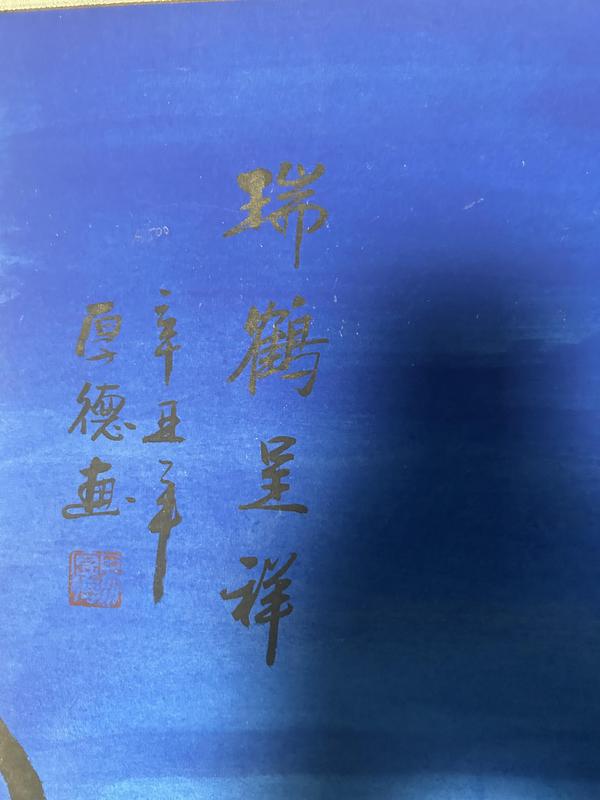 瑞鶴呈祥
辛丑年
厚德画